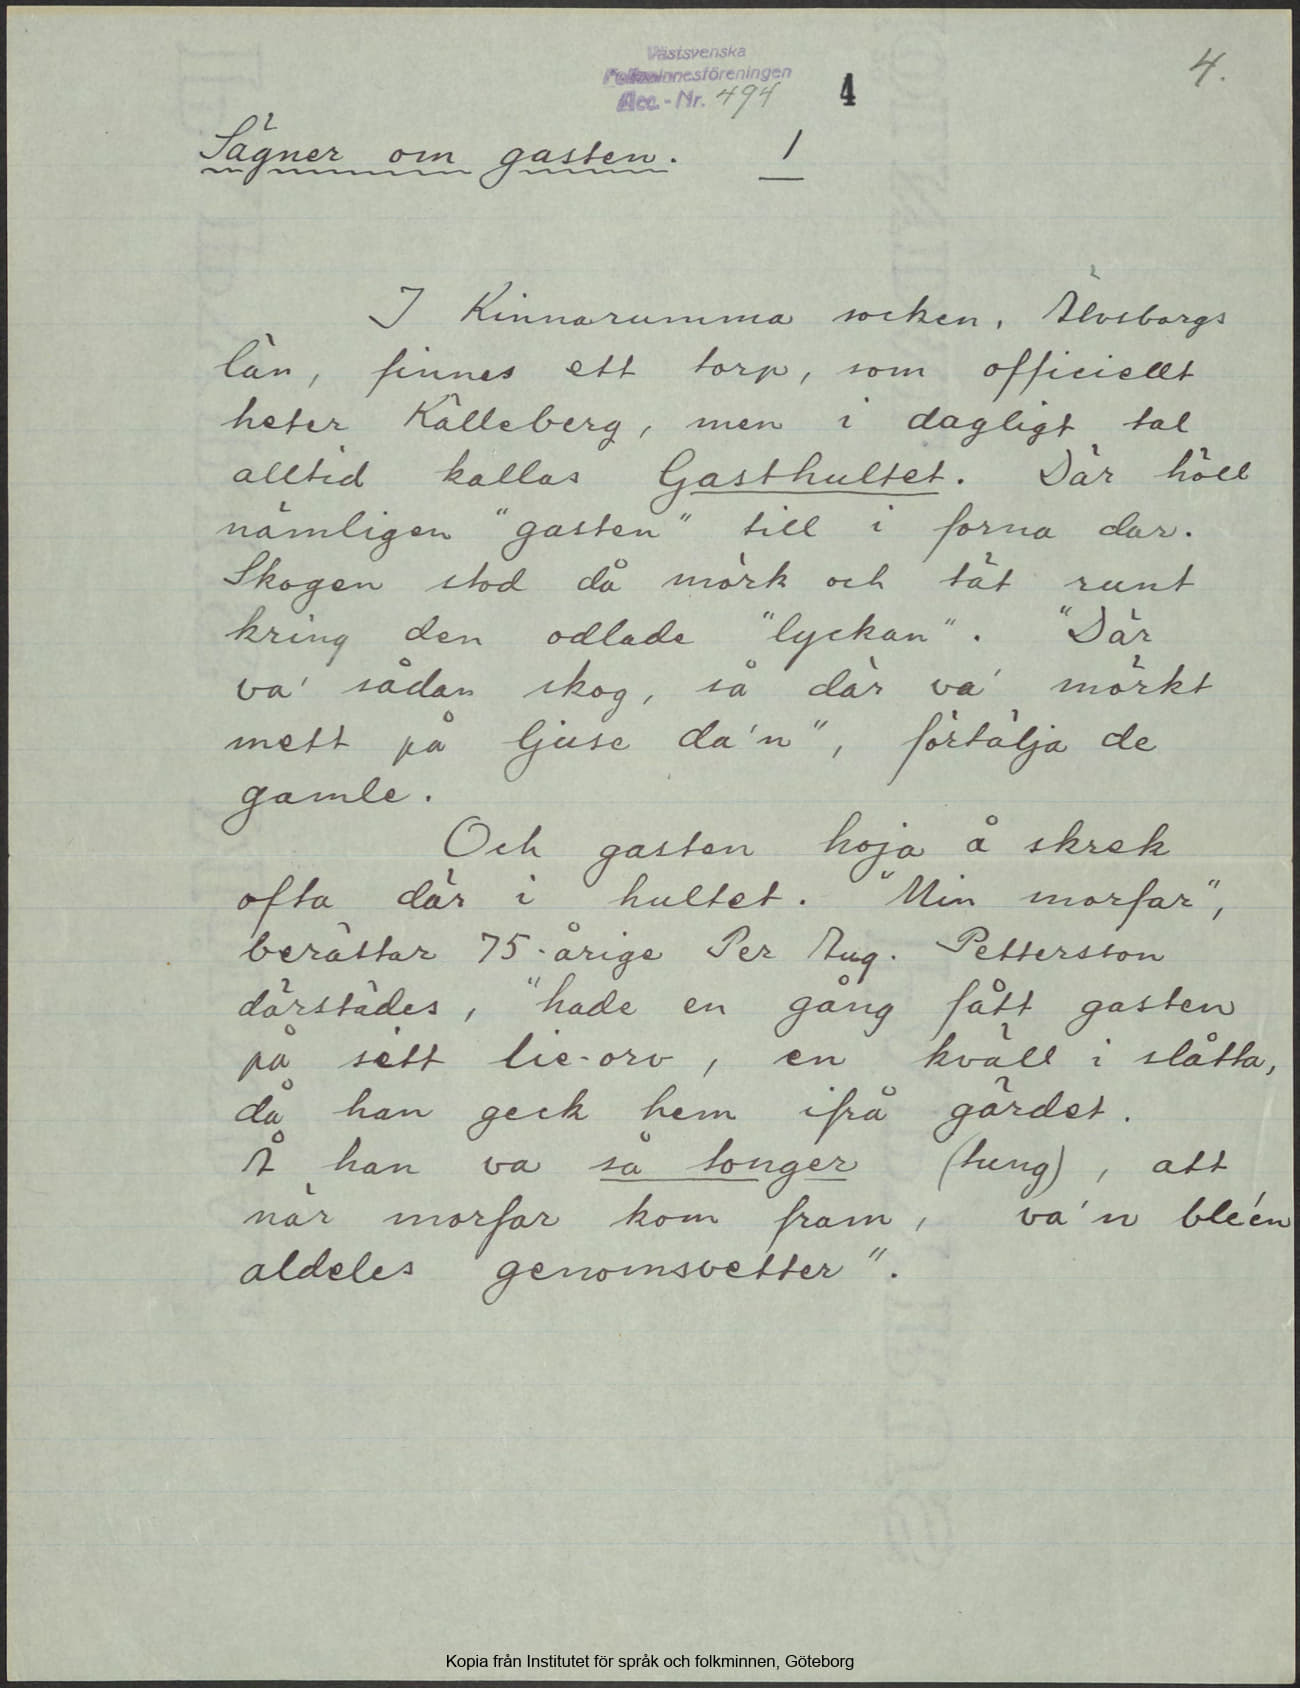 Västsvenska
Folkminnesföreningen
Acc.-Nr. 494
4
4.
Sägner om gasten. 1
I Kinnarumma socken, Älvsborgs
län, finnes ett torp, som officiellt
heter Kålleberg, men i dagligt tal
alltid kallas Gasthultet. Där höll
nämligen "gasten" till i forna dar.
Skogen stod då mörk och tät runt
kring den odlade "lyckan". "Där
va' sådan skog, så där va' mörkt
mett på ljuse da'n", förtälja de
gamle.
Och gasten hoja å skrek
ofta där i hultet. "Min morfar",
berättar 75-årige Per Aug. Pettersson
därstädes, "hade en gång fått gasten
på sitt lie-orv, en kväll i slåtta,
då han geck hem ifrå gärdet.
Å han va så tonger (tung), att
när morfar kom fram, va'n ble'en
aldeles genomsvetter".
Kopia från Institutet för språk och folkminnen, Göteborg